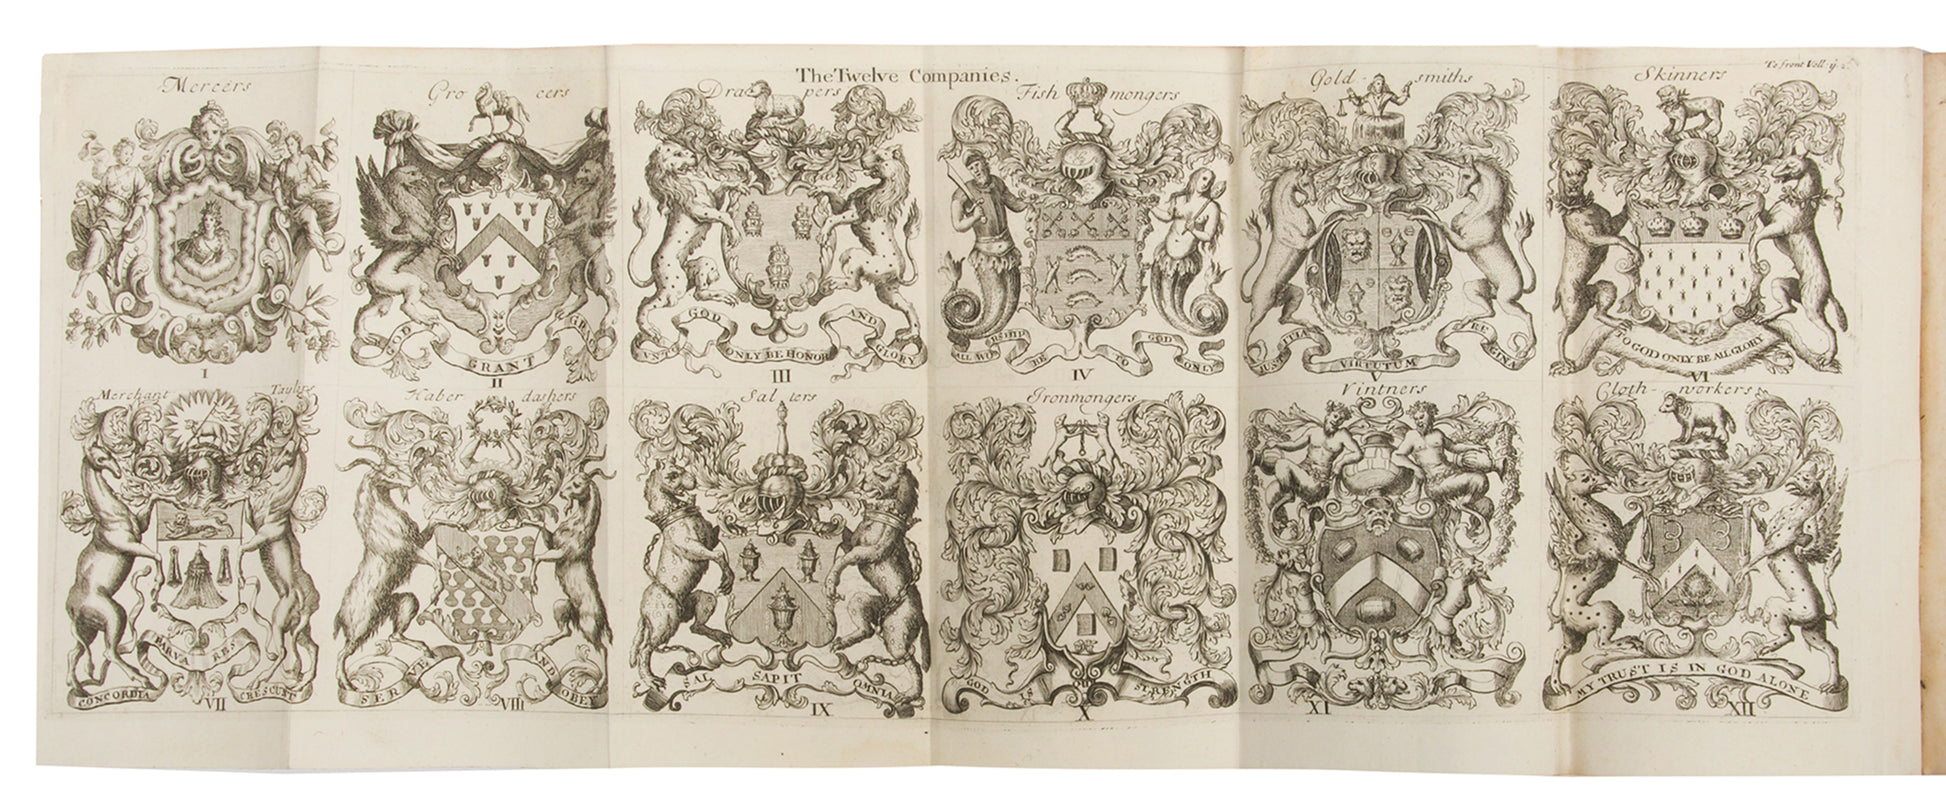 The Twelve Companies.
To front Voll ij.
Mercers
I
Grocers
GOD GRANT GRA
II
Drapers
VNTO GOD ONLY BE HONOR AND GLORY
III
Fishmongers
ALL WORSHIP BE TO GOD ONLY
IV
Gold-smiths
JUSTITIA VIRTUTUM REGINA
V
Skinners
TO GOD ONLY BE ALL GLORY
VI
Merchant Taylers
CONCORDIA PARVA RES CRESCUNT
VII
Haberdashers
SERVE AND OBEY
VIII
Salters
SAL SAPIT OMNIA
IX
Ironmongers
GOD IS OUR STRENGTH
X
Vintners
XI
Cloth-workers
MY TRUST IS IN GOD ALONE
XII